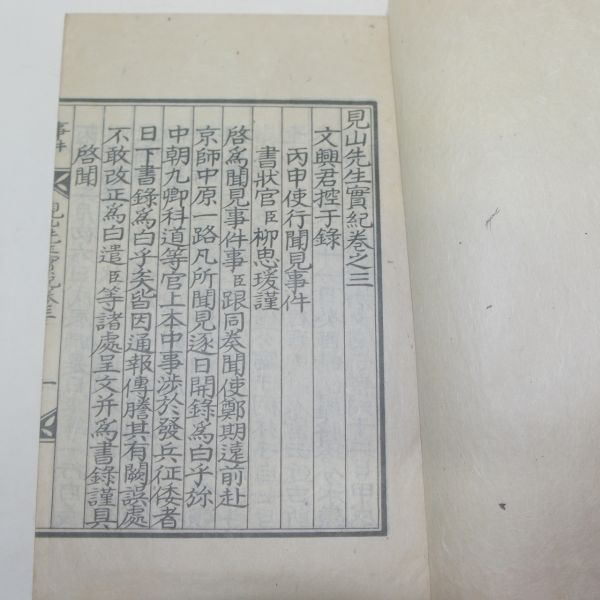 見山先生實紀卷之三
文興君控于錄
丙申使行聞見事件
書狀官臣柳思瑗謹
啓爲聞見事件事臣跟同奏聞使鄭期遠前赴
京師中原一路凡所聞見逐日開錄爲白乎旀
中朝九卿科道等官上本中事涉於發兵征倭者
日下書錄爲白乎矣皆因通報傳謄其有闕誤處
不敢改正爲白遣臣等諸處呈文并爲書錄謹具
啓聞
事件
見山先生實紀卷三
一